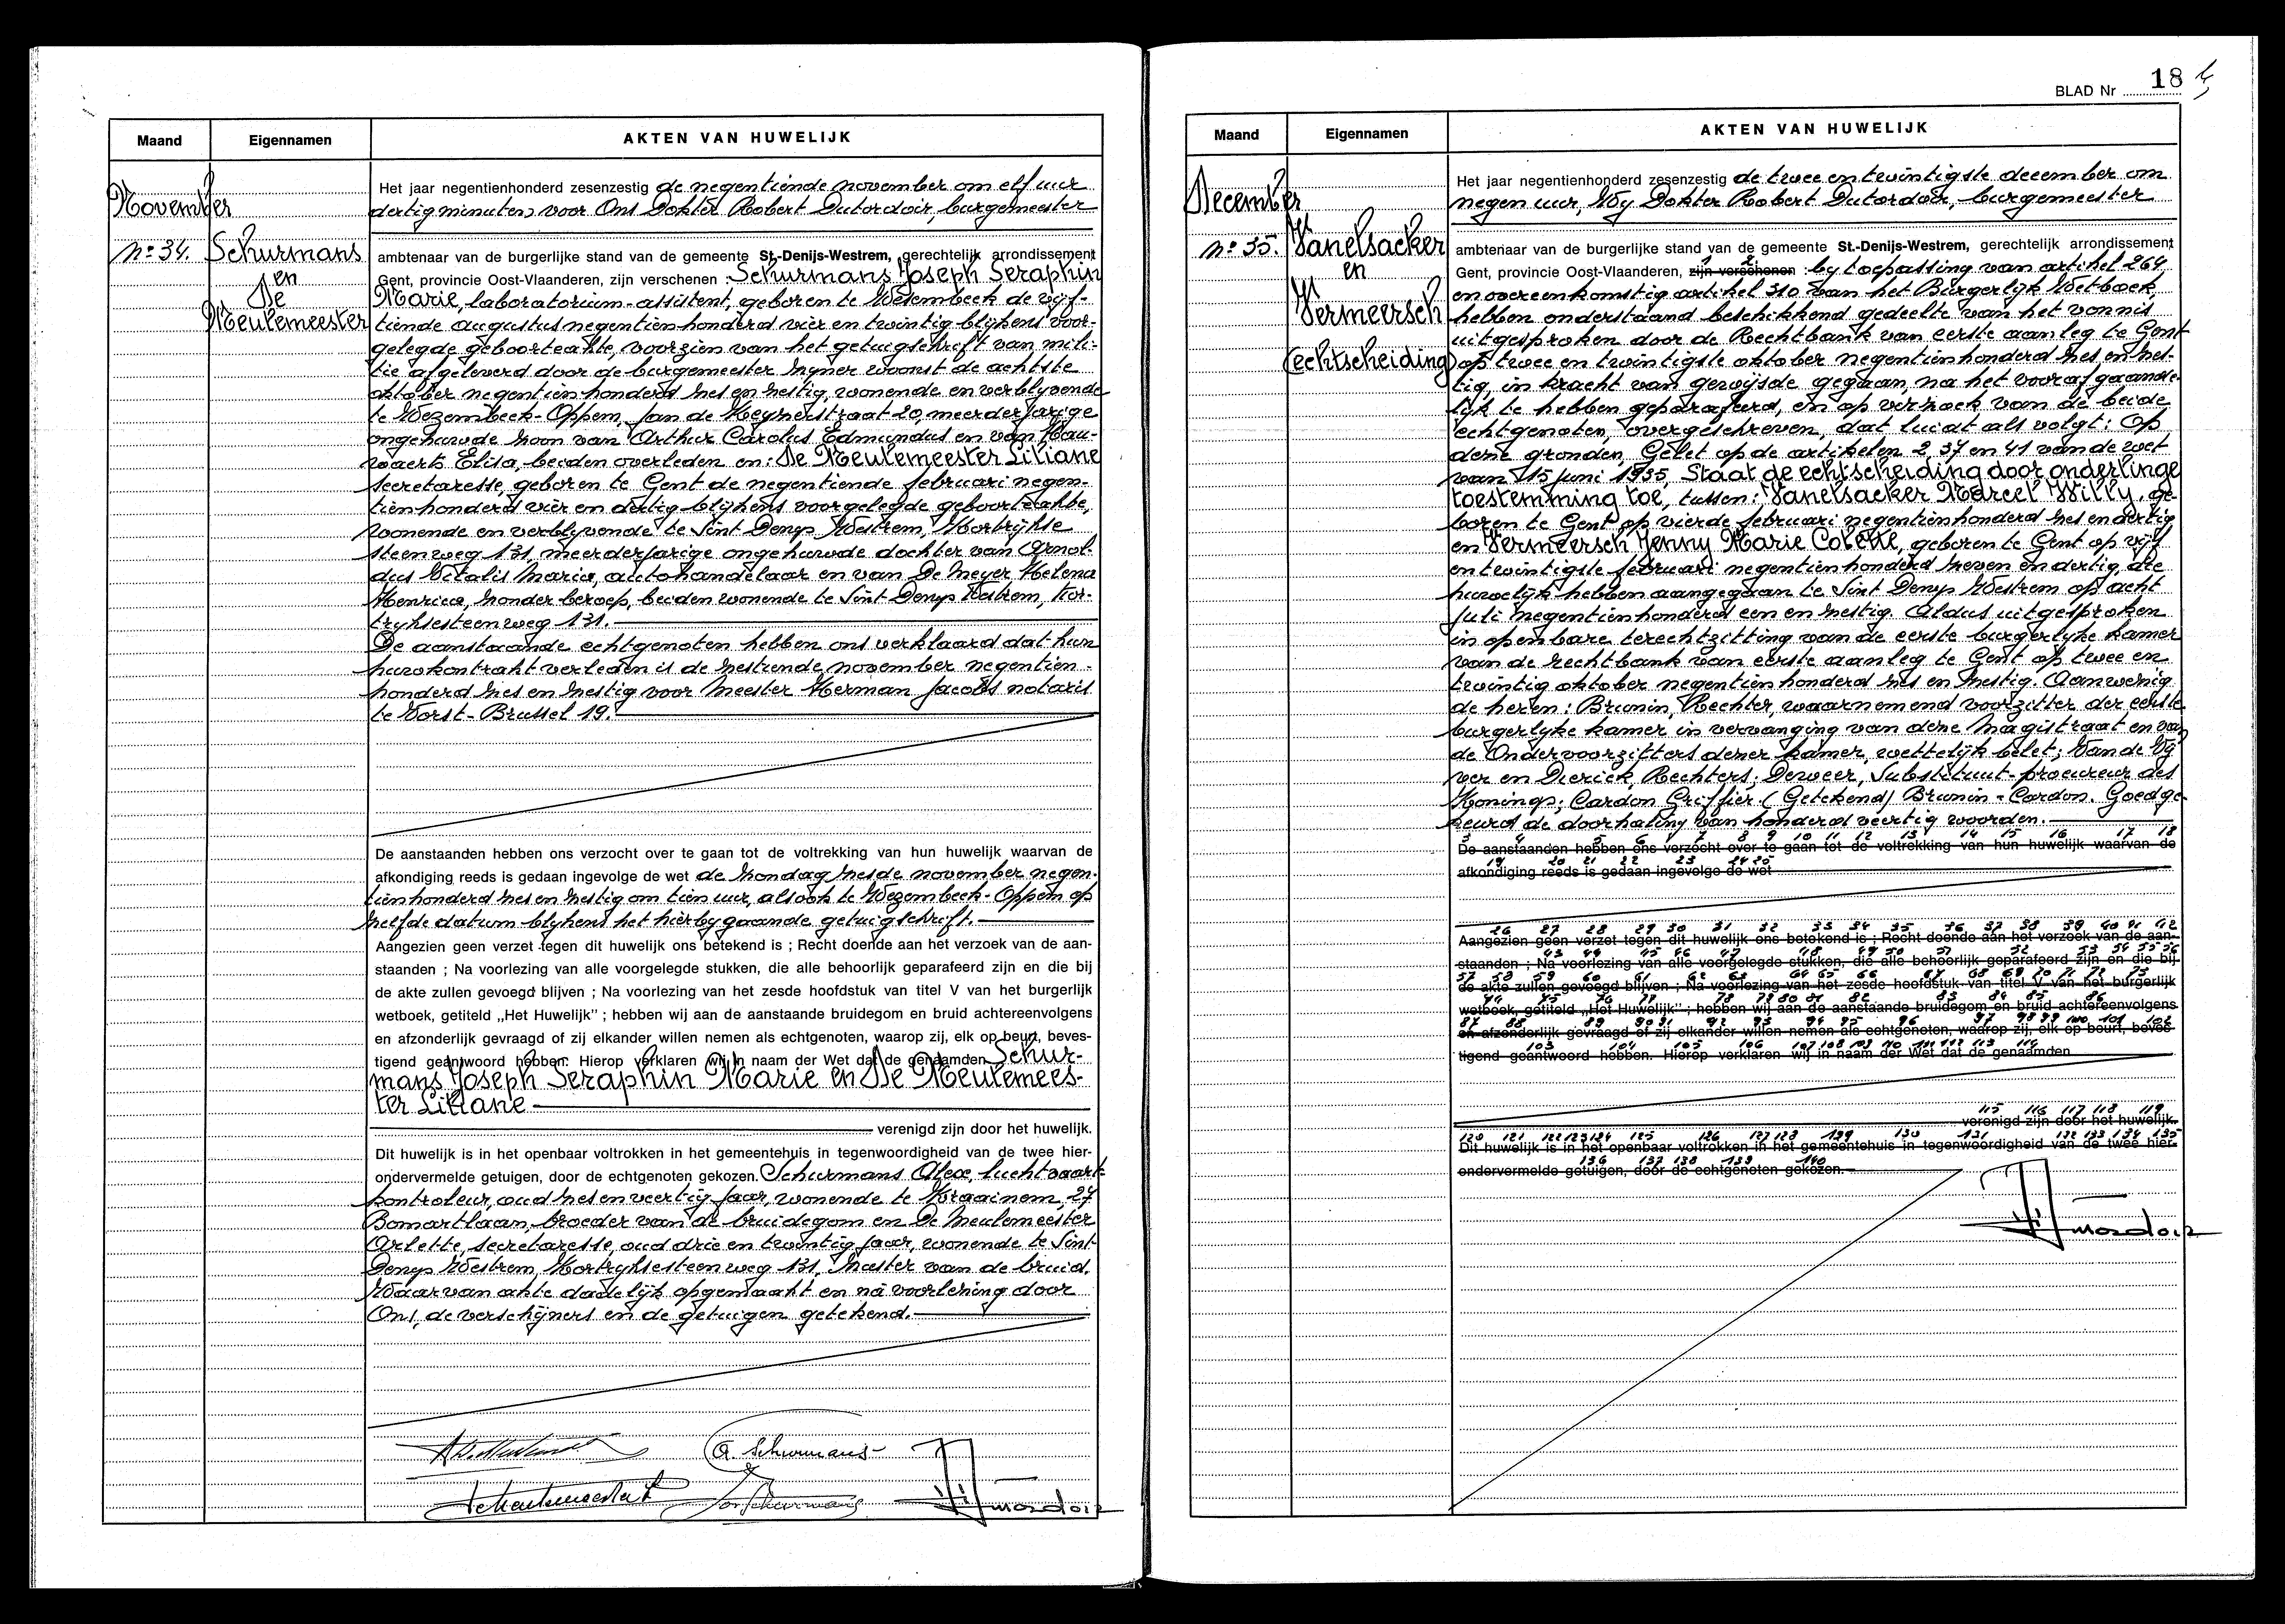 Maand
Eigennamen
AKTEN VAN HUWELIJK
November
Nº 34.
Schurmans
en
De
Meulemeester
Het jaar negentienhonderd zesenzestig de negentiende november om elf uur
dertig minuten, voor Ons Dokter Robert Dutordoir, burgemeester
ambtenaar van de burgerlijke stand van de gemeente St.-Denijs-Westrem, gerechtelijk arrondissement
Gent, provincie Oost-Vlaanderen, zijn verschenen : Schurmans Joseph Seraphin
Marie, laboratorium-assistent, geboren te Wesembeek de vijf-
tiende augustus negentienhonderd vier en twintig blijkens voor-
gelegde geboorteakte, voorzien van het getuigschrift van mili-
tie afgeleverd door de burgemeester zijner woonst de achtste
oktober negentienhonderd zes en zestig, wonende en verblijvende
te Wezembeek-Oppem, Jan de Keyzerstraat 20, meerderjarige
ongehuwde zoon van Arthur Carolus Edmundus en van Hau-
waerts Elisa, beiden overleden en: De Meulemeester Liliane
secretaresse, geboren te Gent de negentiende februari negen-
tienhonderd vier en dertig blijkens voorgelegde geboorteakte,
wonende en verblyvende te Sint Denys Westrem, Kortrijkse
steenweg 131, meerderjarige ongehuwde dochter van Arnol-
dus Vitalis Maria, autohandelaar en van De Meyer Helena
Henrica, zonder beroep, beiden wonende te Sint Denys Westrem, Kor-
tryksesteenweg 131.
De aanstaande echtgenoten hebben ons verklaard dat hun
huwkontrakt verleden is de zestiende november negentien-
honderd zes en zestig voor Meester Herman Jacobs notaris
te Vorst-Brussel 19.
De aanstaanden hebben ons verzocht over te gaan tot de voltrekking van hun huwelijk waarvan de
afkondiging reeds is gedaan ingevolge de wet de zondag zesde november negen-
tienhonderd zes en zestig om tien uur, alsook te Wezembeek-Oppem op
zelfde datum blykens het hierbygaande getuigschrift.
Aangezien geen verzet tegen dit huwelijk ons betekend is ; Recht doende aan het verzoek van de aan-
staanden ; Na voorlezing van alle voorgelegde stukken, die alle behoorlijk geparafeerd zijn en die bij
de akte zullen gevoegd blijven ; Na voorlezing van het zesde hoofdstuk van titel V van het burgerlijk
wetboek, getiteld „Het Huwelijk" ; hebben wij aan de aanstaande bruidegom en bruid achtereenvolgens
en afzonderlijk gevraagd of zij elkander willen nemen als echtgenoten, waarop zij, elk op beurt, beves-
tigend geantwoord hebben. Hierop verklaren wij in naam der Wet dat de genaamden Schur-
mans Joseph Seraphin Marie en De Meulemees-
ter Liliane
verenigd zijn door het huwelijk.
Dit huwelijk is in het openbaar voltrokken in het gemeentehuis in tegenwoordigheid van de twee hier-
ondervermelde getuigen, door de echtgenoten gekozen. Schurmans Alex, luchtvaart-
kontroleur, oud zes en veertig jaar, wonende te Kraainem, 27
Bomartlaan, broeder van de bruidegom en De Meulemeester
Arlette, secretaresse, oud drie en twintig jaar, wonende te Sint
Denys Westrem, Kortryksesteenweg 131, zuster van de bruid.
Waarvan akte dadelijk opgemaakt en na voorlezing door
Ons, de verschijners en de getuigen getekend.
A. Schurmans
Jos Schurmans
BLAD Nr 18
Maand
Eigennamen
AKTEN VAN HUWELIJK
December
Nº 35.
Vanelsacker
en
Vermeersch
(echtscheiding)
Het jaar negentienhonderd zesenzestig de twee en twintigste december om
negen uur, Wy Dokter Robert Dutordoir, burgemeester
ambtenaar van de burgerlijke stand van de gemeente St.-Denijs-Westrem, gerechtelijk arrondissement
1 2
Gent, provincie Oost-Vlaanderen, zijn verschenen : by toepassing van artikel 264,
en overeenkomstig artikel 310 van het Burgerlijk Wetboek,
hebben onderstaand beschikkend gedeelte van het vonnis
uitgesproken door de Rechtbank van eerste aanleg te Gent
op twee en twintigste oktober negentienhonderd zes en zes-
tig, in kracht van gewijsde gegaan, na het voorafgaande-
lijk te hebben geparafeerd, en op verzoek van de beide
echtgenoten, overgeschreven, dat luidt als volgt: Op
deze gronden, Gelet op de artikelen 2, 37 en 41 van de wet
van 15 juni 1935, Staat de echtscheiding door onderlinge
toestemming toe, tussen: Vanelsacker Marcel Willy, ge-
boren te Gent op vierde februari negentienhonderd zes en dertig
en Vermeersch Jenny Marie Colette, geboren te Gent op vijf
en twintigste februari negentienhonderd zeven en dertig, die
huwelijk hebben aangegaan te Sint Denys Westrem op acht
juli negentienhonderd een en zestig. Aldus uitgesproken
in openbare terechtzitting van de eerste burgerlyke kamer
van de rechtbank van eerste aanleg te Gent op twee en
twintig oktober negentienhonderd zes en zestig. Aanwezig
de heren: Brunin, Rechter, waarnemend voorzitter der eerste
burgerlyke kamer in vervanging van deze Magistraat en van
de Ondervoorzitters dezer kamer, wettelijk belet; Van de Vy
ver en Dierick, Rechters; Derveer, Substituut-procureur des
Konings; Cardon Griffier. (Getekend) Brunin - Cardon. Goedge-
keurd de doorhaling van honderd veertig woorden.
3 4 5 6 7 8 9 10 11 12 13 14 15 16 17 18
De aanstaanden hebben ons verzocht over te gaan tot de voltrekking van hun huwelijk waarvan de
19 20 21 22 23 24 25
afkondiging reeds is gedaan ingevolge de wet
26 27 28 29 30 31 32 33 34 35 36 37 38 39 40 41 42
Aangezien geen verzet tegen dit huwelijk ons betekend is ; Recht doende aan het verzoek van de aan-
43 44 45 46 47 48 49 50 51 52 53 54 55 56
staanden ; Na voorlezing van alle voorgelegde stukken, die alle behoorlijk geparafeerd zijn en die bij
57 58 59 60 61 62 63 64 65 66 67 68 69 70 71 72 73
de akte zullen gevoegd blijven ; Na voorlezing van het zesde hoofdstuk van titel V van het burgerlijk
74 75 76 77 78 79 80 81 82 83 84 85 86
wetboek, getiteld „Het Huwelijk" ; hebben wij aan de aanstaande bruidegom en bruid achtereenvolgens
87 88 89 90 91 92 93 94 95 96 97 98 99 100 101 102
en afzonderlijk gevraagd of zij elkander willen nemen als echtgenoten, waarop zij, elk op beurt, beves-
103 104 105 106 107 108 109 110 111 112 113 114
tigend geantwoord hebben. Hierop verklaren wij in naam der Wet dat de genaamden
115 116 117 118 119
verenigd zijn door het huwelijk.
120 121 122 123 124 125 126 127 128 129 130 131 132 133 134 135
Dit huwelijk is in het openbaar voltrokken in het gemeentehuis in tegenwoordigheid van de twee hier-
136 137 138 139 140
ondervermelde getuigen, door de echtgenoten gekozen.